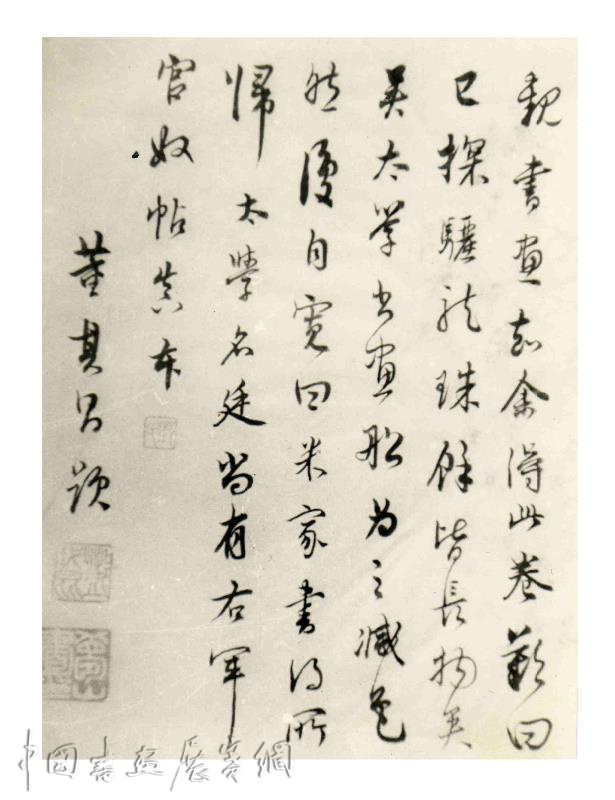 観書畫知余得此卷歎曰
已探驪龍珠餘皆長物矣
吳太學書畫船為之減色
然復自寬曰米家書得所
歸太學名廷尚有右軍
官奴帖真本
董其昌題
中國書畫展賽網